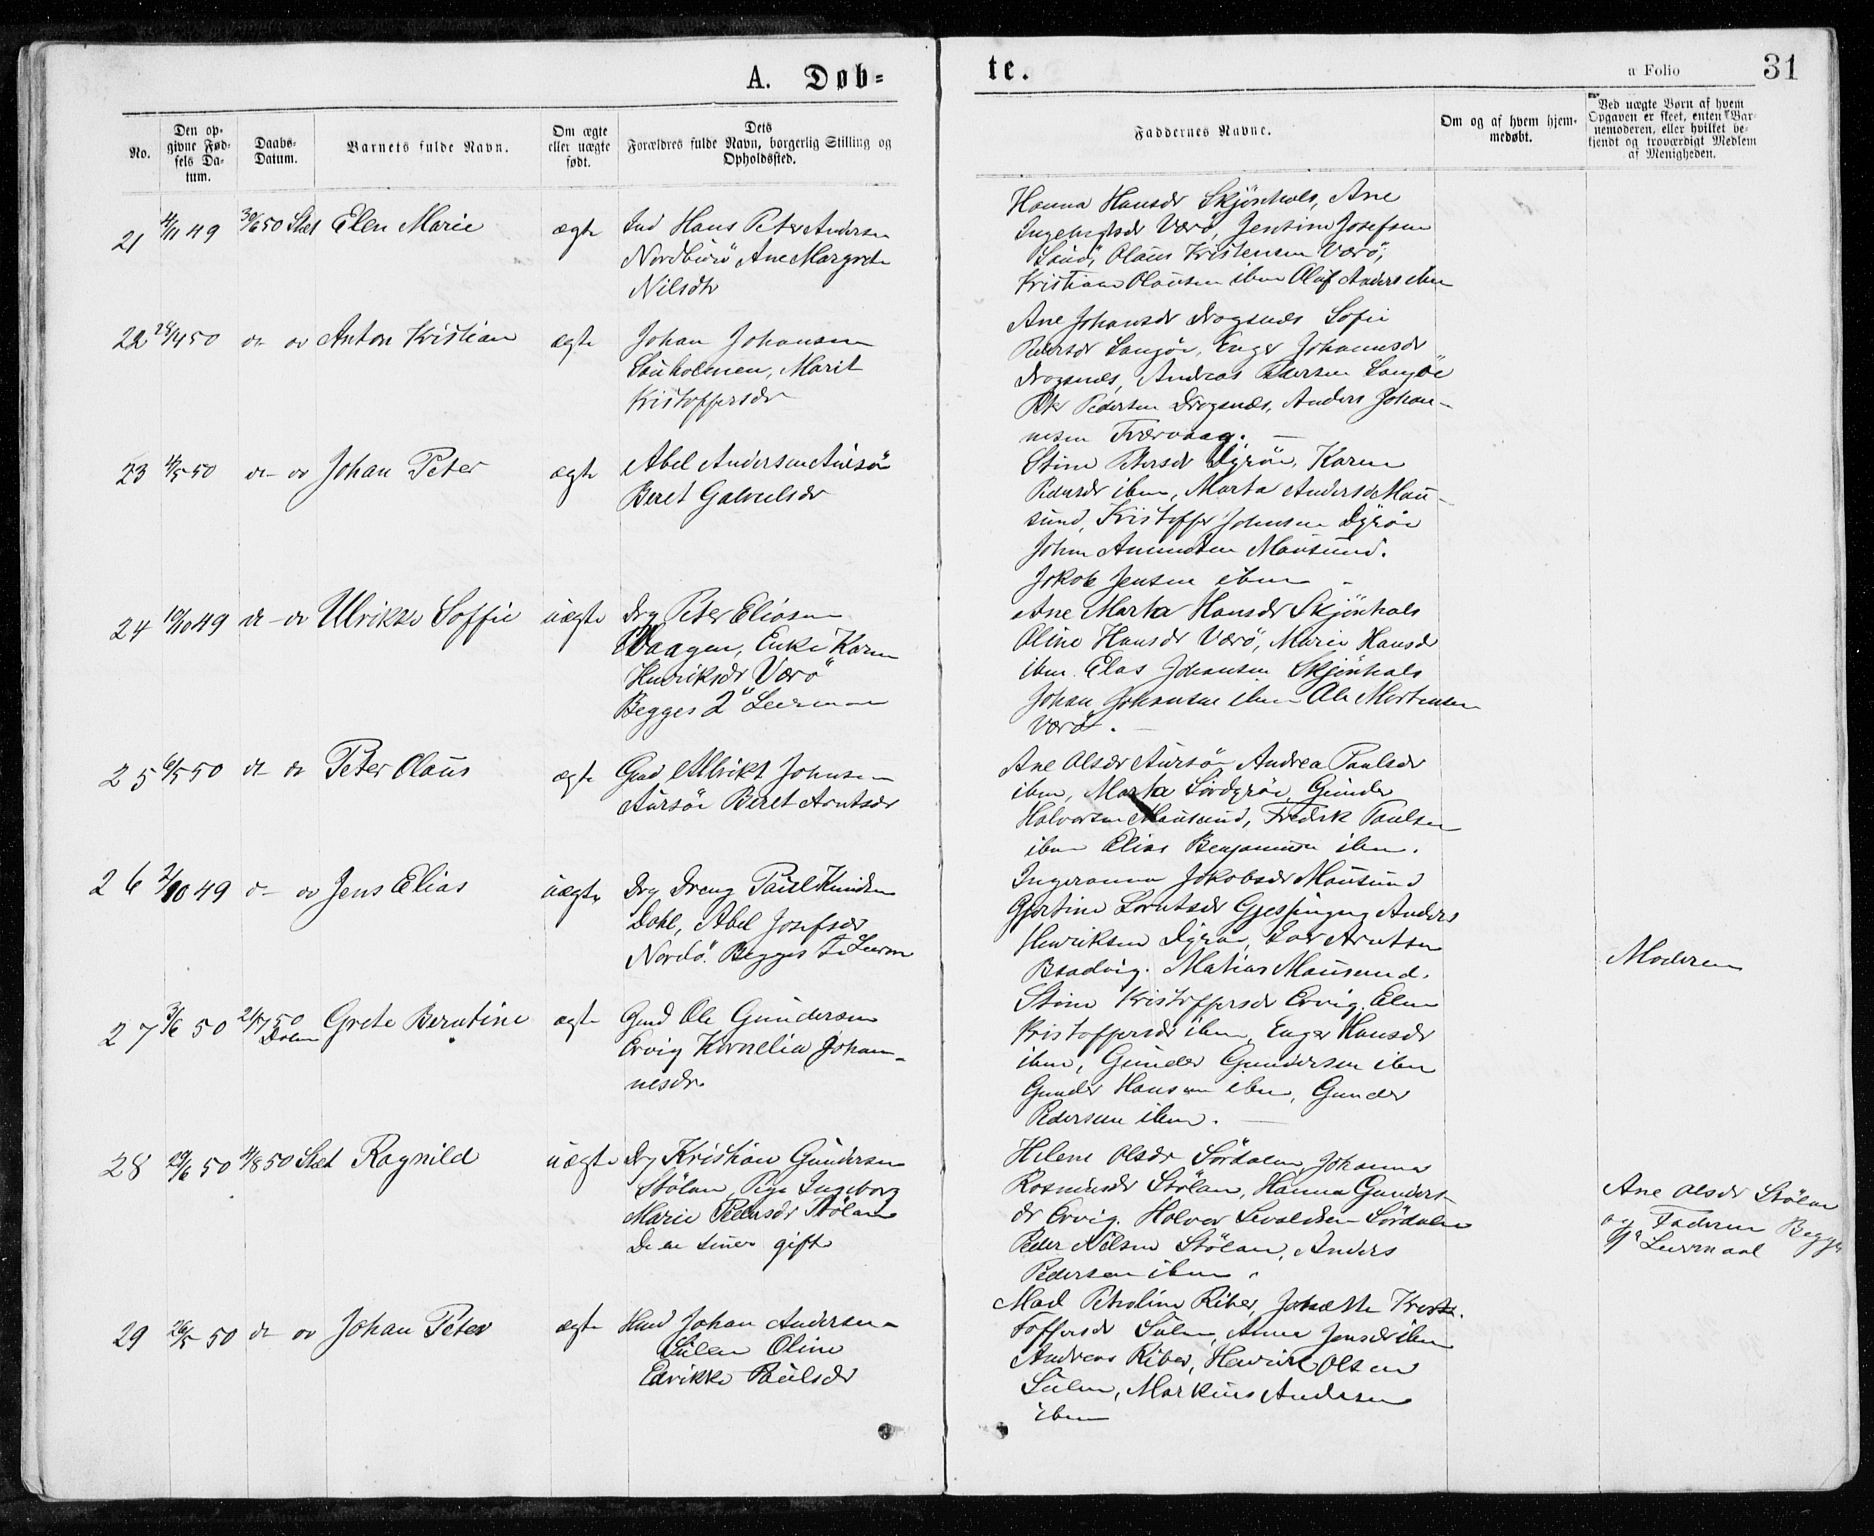 A. Døb=
te.
a Folio
31
No.
Den op-
givne Fød-
sels Da-
tum.
Daabs-
Datum.
Barnets fulde Navn.
Om ægte
eller uægte
født.
Dets
Forældres fulde Navn, borgerlig Stilling og
Opholdssted.
Faddernes Navne.
Om og af hvem hjem-
medøbt.
Ved uægte Børn af hvem
Opgaven er skeet, enten Bar-
nemoderen, eller hvilket be-
kjendt og troværdigt Medlem
af Menigheden.
21 4/11 49 30/6 50 Slet Elen Marie ægte Ind Hans Peter Andersen
Nordbuö Ane Margrete
Nilsdtr
Hanna Hansdr Skjönhals, Ane
Ingebrigtsdr Værö, Jensine Josefsen
Olaus Kristensen Værö,
Kristian Olausen ibm Oluf Anders ibm
22 28/4 50 do do Anton Kristian ægte Johan Johansen
Sauholmen, Marit
Kristoffersdr
Ane Johansdr Drogsnes Sofie
Pedersdr Langöe, Inger Johannsdr
Drogsnes, Andreas Pedersen Langöe
Petr Pedersen Drogsnes, Anders Johan-
nesen Tværvaag. —
23 4/5 50 do do Johan Peter ægte Abel Andersen Aursö
Beret Gabrielsdr
Stine Petersdr Dyröe, Karen
Pedersdr ibm, Marta Andersdr Mau-
sund, Kristoffer Johnsen Dyröe
John Amundsen Mausund.
Jakob Jensen ibm -
24 10/10 49 do do Ulrikke Soffie uægte Drg Peter Eliasen
Vaagen, Enke Karen
Henriksdr Værö
Begges 2de Leiermaal
Ane Marta Hansdr Skjönhals
Oline Hansdr Værö, Marie Hansdr
ibm Elas Johansen Skjönhals
Johan Johansen ibm Ole Mortensen
Værö. —
25 6/5 50 do do Peter Olaus ægte Gmd Ulrikt Johnsen
Aursöe Beret Arntsdr
Ane Olsdr Aursöe, Andrea Paulsdr
ibm, Marta Sördyröe, Gunder
Halvorsen Mausund, Fredrk Paulsen
ibm Elias Benjaminsen ibm.
26 2/10 49 do do Jens Elias uægte Drg Dreng Paul Knudsen
Dahl, Abel Josefsdr
Nordö. Begges 1ste Leierm
Ingeranna Jakobsdr Mausund
Gjertine Lorntsdr Gjessingng Anders
Henriksen Dyröe, Lars Arntsen
Bradvig. Matias Mausund.
Moderen
27 3/6 50 21/7 50 Grete Berntine ægte Gmd Ole Gundersen
Dolm
Ervig Kornelia Johan-
nesdr.
Stine Kristoffersdr Ervig, Elen
Kristoffersdr ibm, Inger Hansdr
ibm, Gunder Gundersen ibm
Gunder Hansen ibm, Gunder
Pedersen ibm. —
28 29/6 50 11/8 50 Slet Ragnild uægte Drg Kristian Gundersen
Stölan, Pige Ingeborg
Marie Pedersdr Stölan
De ere siden gifte
Helene Olsdr Sördalen, Johanna
Rasmusdr Stölan, Hanna Gunders-
dr Ervig. Halvor Sevaldsen Sördalen
Peder Nilsen Stölan, Anders
Pedersen ibm.
Ane Olsdr Stölan
og Faderen Begges
1ste Leiermaal
29 26/5 50 do do Johan Peter ægte Hmd Johan Andersen
Sulen Oline
Edvikke Paulsdr
Mad Petroline Riber, Josette Kris-
toffersdr Sulen, Anna Jensdr ibm
Andreas Riber, Henrik Olsen
Sulen, Markus Andersen
ibm